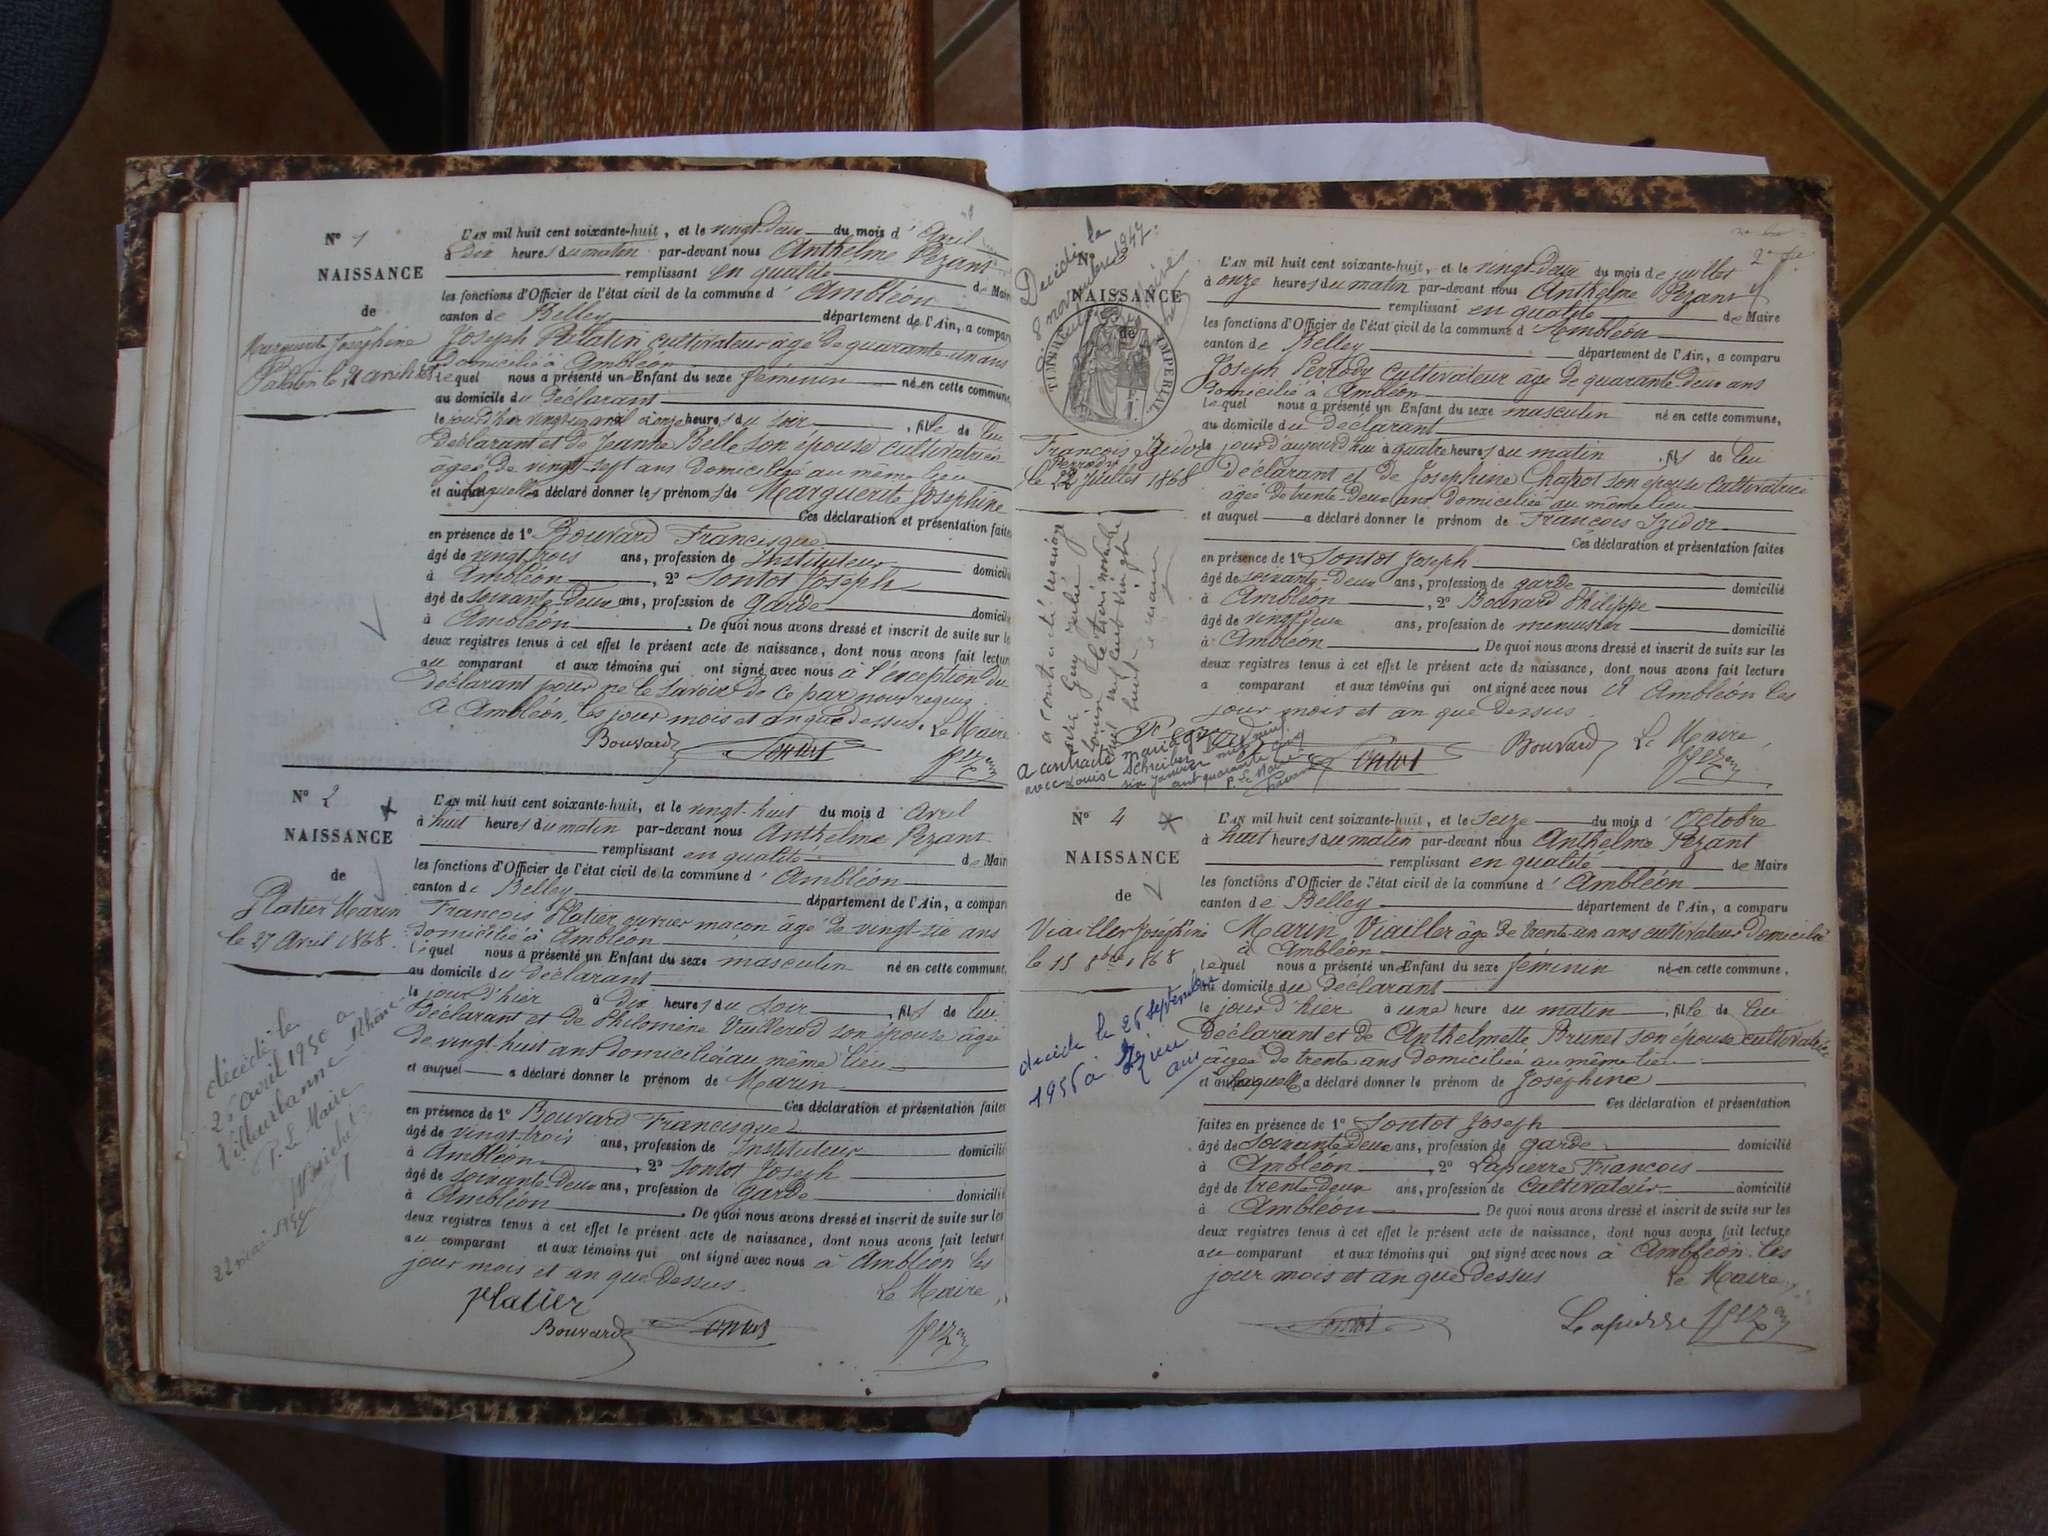 N° 1
NAISSANCE
de
Marguerite Joséphine
L'AN mil huit cent soixante-huit, et le vingt-deux du mois d'Avril
à dix heures du matin par-devant nous Anthelme Pezant
remplissant en qualité de Maire
les fonctions d'Officier de l'état civil de la commune d'Ambléon
canton de Belley département de l'Ain, a comparu
Joseph cultivateur âgé de quarante-un ans
domicilié à Ambléon
lequel nous a présenté un Enfant du sexe féminin né en cette commune,
au domicile du déclarant
le jour d'hier vingt-un avril à onze heures du soir, fille de lui
déclarant et de Jeanne Belle son épouse cultivatrice
âgée de vingt-sept ans domiciliée au même lieu
et auquel laquelle a déclaré donner les prénoms de Marguerite Joséphine
Ces déclaration et présentation faites
en présence de 1° Bouvard Francisque
âgé de vingt-trois ans, profession de Instituteur domicilié
à Ambléon, 2° Sontot Joseph
âgé de soixante-deux ans, profession de garde domicilié
à Ambléon. De quoi nous avons dressé et inscrit de suite sur les
deux registres tenus à cet effet le présent acte de naissance, dont nous avons fait lecture
au comparant et aux témoins qui ont signé avec nous à l'exception du
déclarant pour ne le savoir de ce par nous requis.
A Ambléon, les jour mois et an que dessus. Le Maire
Bouvard Sontot
N° 2
NAISSANCE
de
Platier Marin
le 27 Avril 1868.
décédé le
25 avril 1950 à
Villeurbanne Rhône
P. Le Maire
22 mai
L'AN mil huit cent soixante-huit, et le vingt-huit du mois d'Avril
à huit heures du matin par-devant nous Anthelme Pezant
remplissant en qualité de Maire
les fonctions d'Officier de l'état civil de la commune d'Ambléon
canton de Belley département de l'Ain, a comparu
François Platier ouvrier maçon âgé de vingt-six ans
domicilié à Ambléon
lequel nous a présenté un Enfant du sexe masculin né en cette commune,
au domicile du déclarant
le jour d'hier à dix heures du soir, fils de lui
déclarant et de Philomène son épouse âgée
de vingt-huit ans domiciliée au même lieu
et auquel a déclaré donner le prénom de Marin
Ces déclaration et présentation faites
en présence de 1° Bouvard Francisque
âgé de vingt-trois ans, profession de Instituteur domicilié
à Ambléon, 2° Sontot Joseph
âgé de soixante-deux ans, profession de garde domicilié
à Ambléon. De quoi nous avons dressé et inscrit de suite sur les
deux registres tenus à cet effet le présent acte de naissance, dont nous avons fait lecture
au comparant et aux témoins qui ont signé avec nous à Ambléon les
jour mois et an que dessus. Le Maire,
Platier
Bouvard Sontot
Décédé le
8 novembre 1947
N° 3
NAISSANCE
de
TIMBRE IMPERIAL
François Izidor
le 22 Juillet 1868
a contracté mariage
avec Louise
six janvier mil neuf
cent quarante
P. Le Maire
L'AN mil huit cent soixante-huit, et le vingt-deux du mois de juillet
à onze heures du matin par-devant nous Anthelme Pezant
remplissant en qualité de Maire
les fonctions d'Officier de l'état civil de la commune d'Ambléon
canton de Belley département de l'Ain, a comparu
Joseph cultivateur âgé de quarante-deux ans
domicilié à Ambléon
lequel nous a présenté un Enfant du sexe masculin né en cette commune,
au domicile du déclarant
le jour d'aujourd'hui à quatre heures du matin, fils de lui
déclarant et de Joséphine Chapot son épouse cultivatrice
âgée de trente-deux ans domiciliée au même lieu
et auquel a déclaré donner le prénom de François Izidor
Ces déclaration et présentation faites
en présence de 1° Sontot Joseph
âgé de soixante-deux ans, profession de garde domicilié
à Ambléon, 2° Bouvard Philippe
âgé de vingt-deux ans, profession de menuisier domicilié
à Ambléon. De quoi nous avons dressé et inscrit de suite sur les
deux registres tenus à cet effet le présent acte de naissance, dont nous avons fait lecture
a comparant et aux témoins qui ont signé avec nous à Ambléon les
jour mois et an que dessus.
Sontot Bouvard Le Maire,
N° 4
NAISSANCE
de
Viailler Joséphine
le 15 8bre 1868
décédée le 26 septembre
1956 à
L'AN mil huit cent soixante-huit, et le seize du mois d'Octobre
à huit heures du matin par-devant nous Anthelme Pezant
remplissant en qualité de Maire
les fonctions d'Officier de l'état civil de la commune d'Ambléon
canton de Belley département de l'Ain, a comparu
Marin Viailler âgé de trente-un ans cultivateur domicilié
à Ambléon
lequel nous a présenté un Enfant du sexe féminin né en cette commune,
au domicile du déclarant
le jour d'hier à une heure du matin, fille de lui
déclarant et de Anthelmette Brunet son épouse cultivatrice
âgée de trente ans domiciliée au même lieu
et à laquelle a déclaré donner le prénom de Joséphine
Ces déclaration et présentation
faites en présence de 1° Sontot Joseph
âgé de soixante-deux ans, profession de garde domicilié
à Ambléon, 2° Lapierre François
âgé de trente-deux ans, profession de Cultivateur domicilié
à Ambléon. De quoi nous avons dressé et inscrit de suite sur les
deux registres tenus à cet effet le présent acte de naissance, dont nous avons fait lecture
au comparant et aux témoins qui ont signé avec nous à Ambléon. Les
jour mois et an que dessus Le Maire,
Sontot Lapierre